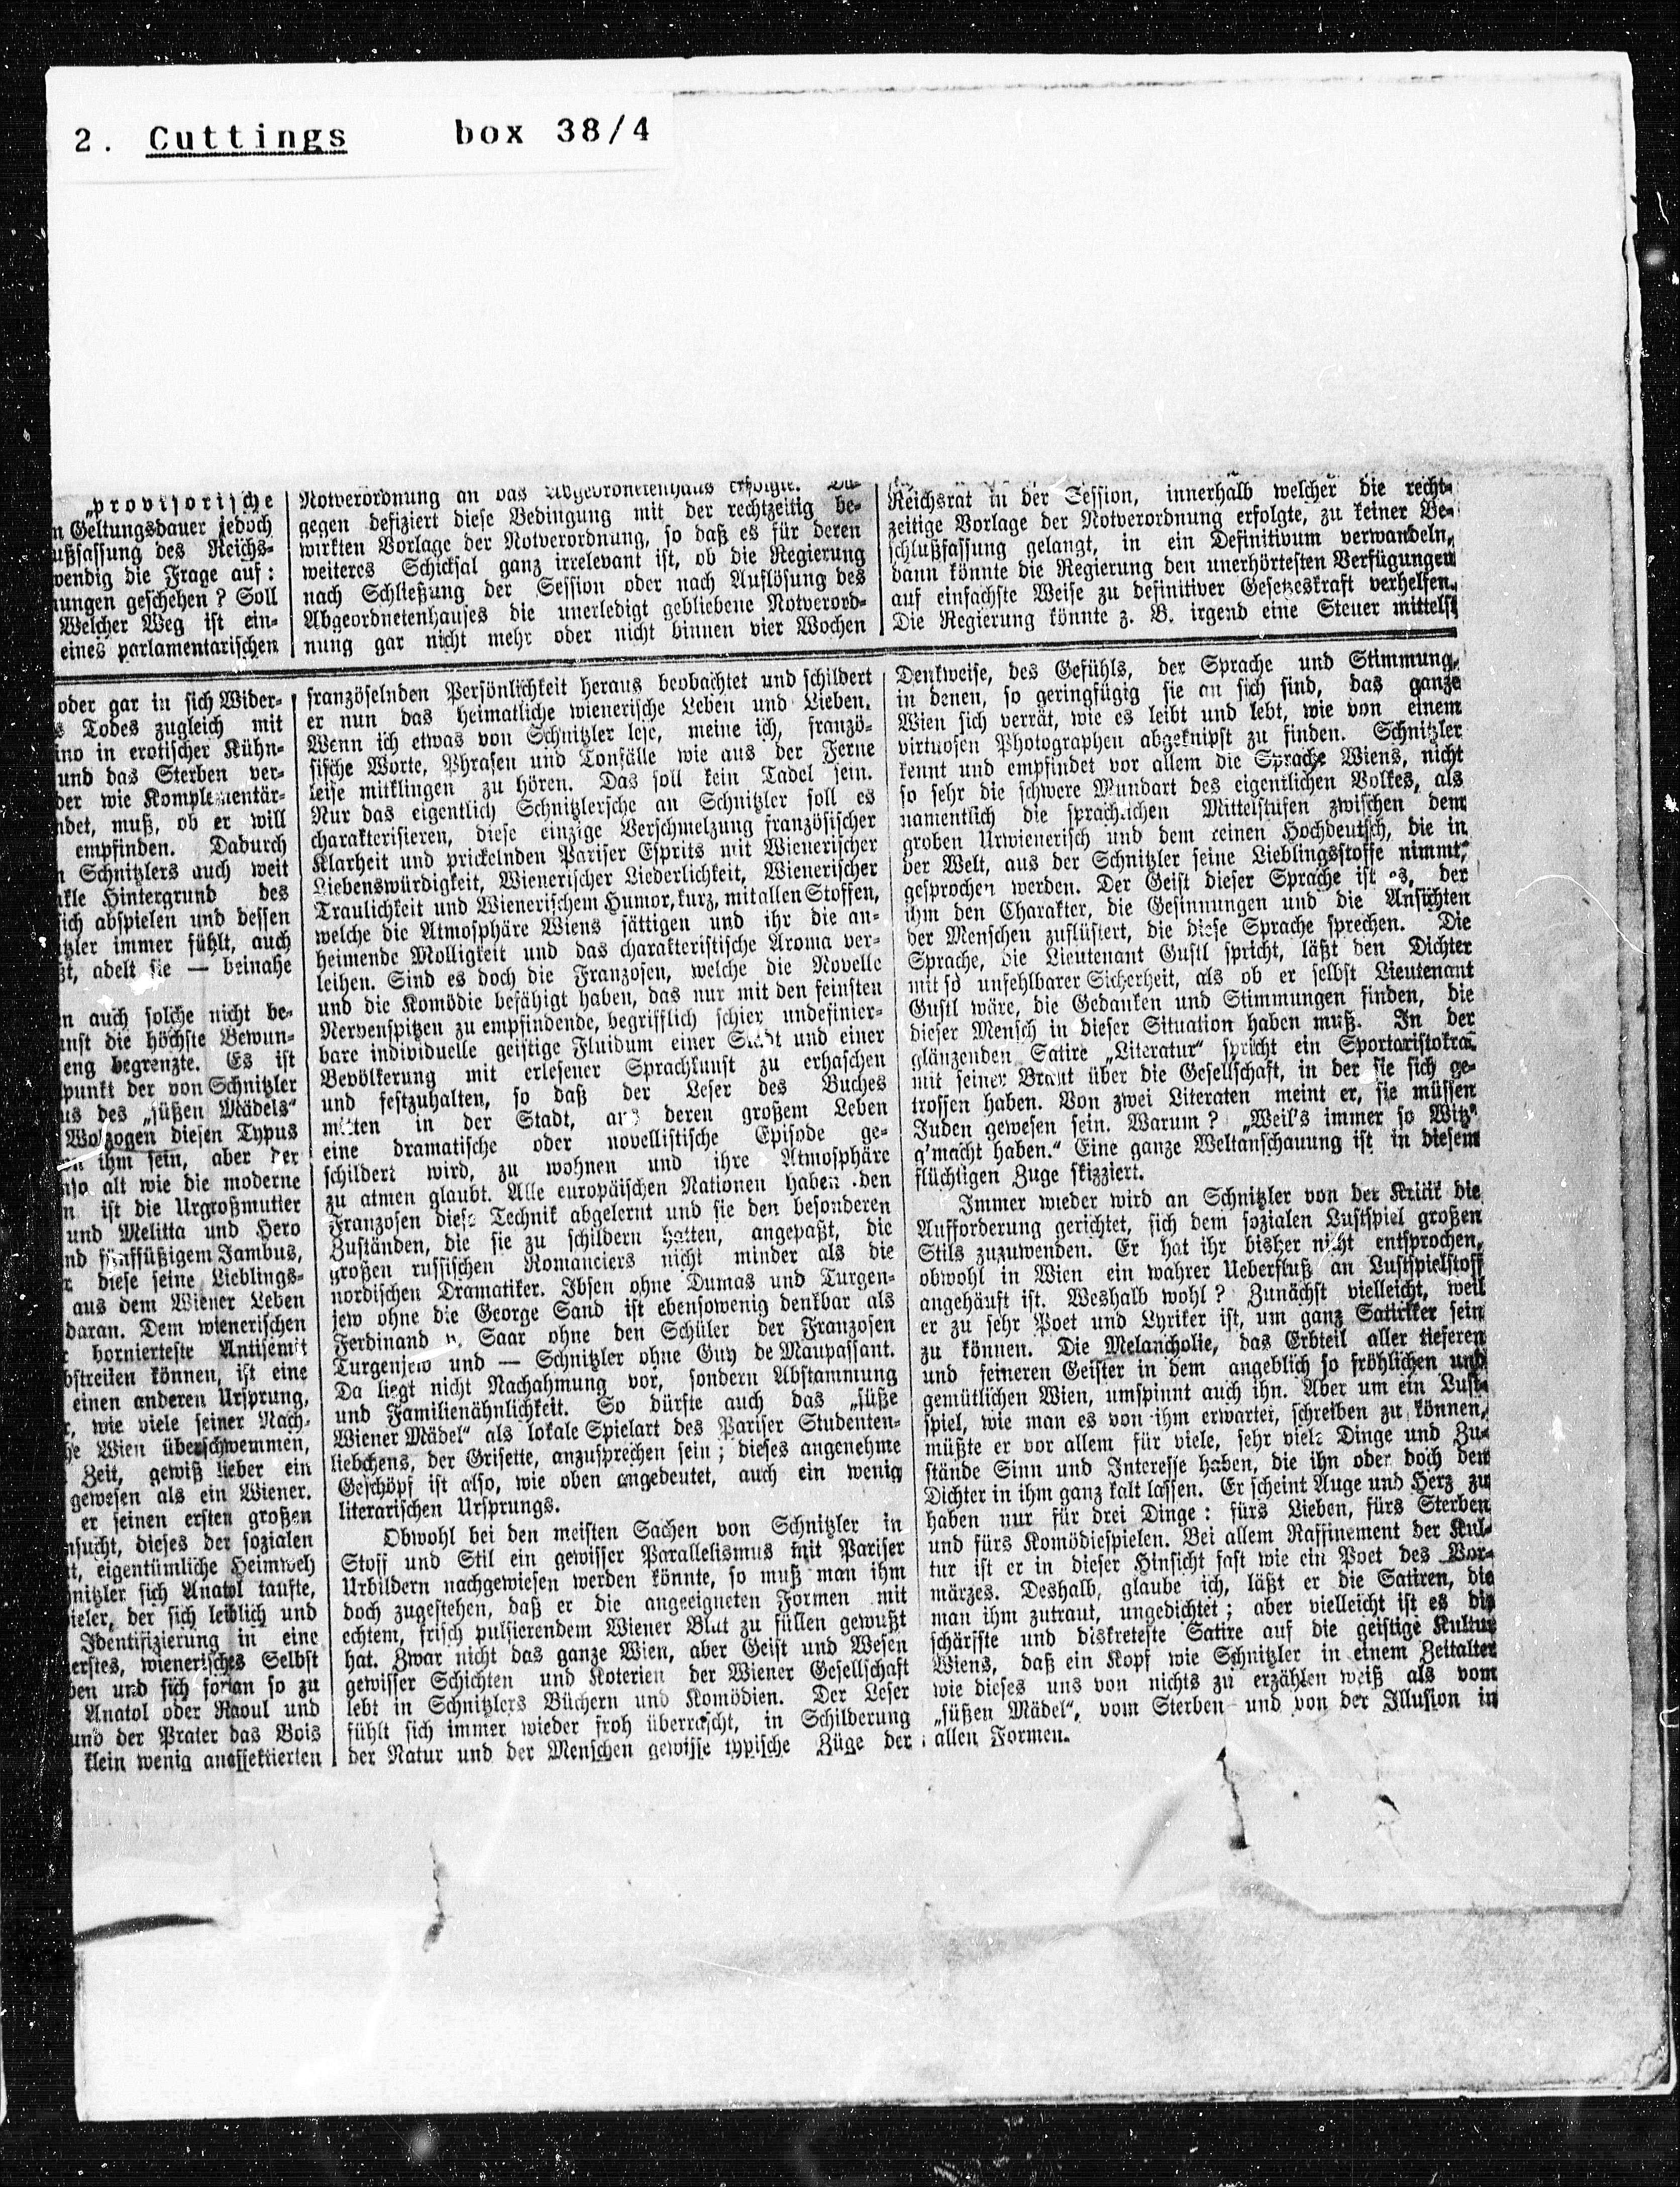 2. Cuttings box 38/4
„provisorische
Geltungsdauer jedoch
des Reichs-
die Frage auf:
geschehen? Soll
Welcher Weg ist ein-
eines parlamentarischen
Notverordnung an das Abgeordnetenhaus erfolgte. Da-
gegen defiziert diese Bedingung mit der rechtzeitig be-
wirkten Vorlage der Notverordnung, so daß es für deren
weiteres Schicksal ganz irrelevant ist, ob die Regierung
nach Schließung der Session oder nach Auflösung des
Abgeordnetenhauses die unerledigt gebliebene Notverord-
nung gar nicht mehr oder nicht binnen vier Wochen
Reichsrat in der Session, innerhalb welcher die recht-
zeitige Vorlage der Notverordnung erfolgte, zu keiner Be-
schlußfassung gelangt, in ein Definitivum verwandeln,
dann könnte die Regierung den unerhörtesten Verfügungen
auf einfachste Weise zu definitiver Gesetzeskraft verhelfen.
Die Regierung könnte z. B. irgend eine Steuer mittelst
oder gar in sich Wider-
Todes zugleich mit
in erotischer Kühn-
und das Sterben ver-
wie Komplementär-
muß, ob er will
empfinden. Dadurch
Schnitzlers auch weit
Hintergrund des
sich abspielen und dessen
immer fühlt, auch
adelt sie — beinahe
auch solche nicht be-
die höchste Bewun-
eng begrenzte. Es ist
der von Schnitzler
des „süßen Mädels"
Wolzogen diesen Typus
ihm sein, aber der
alt wie die moderne
ist die Urgroßmutter
und Melitta und Hero
fünffüßigem Jambus,
diese seine Lieblings-
aus dem Wiener Leben
daran. Dem wienerischen
bornierteste Antisemit
können, ist eine
einen anderen Ursprung,
wie viele seiner Nach-
Wien überschwemmen,
Zeit, gewiß lieber ein
gewesen als ein Wiener.
er seinen ersten großen
dieses der sozialen
eigentümliche Heimweh
sich Anatol taufte,
der sich leiblich und
Identifizierung in eine
wienerisches Selbst
und sich fortan so zu
Anatol oder Raoul und
und der Prater das Bois
klein wenig anaffektierten
französelnden Persönlichkeit heraus beobachtet und schildert
er nun das heimatliche wienerische Leben und Lieben.
Wenn ich etwas von Schnitzler lese, meine ich, franzö-
sische Worte, Phrasen und Tonfälle wie aus der Ferne
leise mitklingen zu hören. Das soll kein Tadel sein.
Nur das eigentlich Schnitzlersche an Schnitzler soll es
charakterisieren, diese einzige Verschmelzung französischer
Klarheit und prickelnden Pariser Esprits mit Wienerischer
Liebenswürdigkeit, Wienerischer Liederlichkeit, Wienerischer
Traulichkeit und Wienerischem Humor, kurz, mit allen Stoffen,
welche die Atmosphäre Wiens sättigen und ihr die an-
heimende Molligkeit und das charakteristische Aroma ver-
leihen. Sind es doch die Franzosen, welche die Novelle
und die Komödie befähigt haben, das nur mit den feinsten
Nervenspitzen zu empfindende, begrifflich schier undefinier-
bare individuelle geistige Fluidum einer Stadt und einer
Bevölkerung mit erlesener Sprachkunst zu erhaschen
und festzuhalten, so daß der Leser des Buches
mitten in der Stadt, aus deren großem Leben
eine dramatische oder novellistische Episode ge-
schildert wird, zu wohnen und ihre Atmosphäre
zu atmen glaubt. Alle europäischen Nationen haben den
Franzosen diese Technik abgelernt und sie den besonderen
Zuständen, die sie zu schildern hatten, angepaßt, die
großen russischen Romanciers nicht minder als die
nordischen Dramatiker. Ibsen ohne Dumas und Turgen-
jew ohne die George Sand ist ebensowenig denkbar als
Ferdinand v. Saar ohne den Schüler der Franzosen
Turgenjew und — Schnitzler ohne Guy de Maupassant.
Da liegt nicht Nachahmung vor, sondern Abstammung
und Familienähnlichkeit. So dürfte auch das „süße
Wiener Mädel" als lokale Spielart des Pariser Studenten-
liebchens, der Grisette, anzusprechen sein; dieses angenehme
Geschöpf ist also, wie oben angedeutet, auch ein wenig
literarischen Ursprungs.
Obwohl bei den meisten Sachen von Schnitzler in
Stoff und Stil ein gewisser Parallelismus mit Pariser
Urbildern nachgewiesen werden könnte, so muß man ihm
doch zugestehen, daß er die angeeigneten Formen mit
echtem, frisch pulsierendem Wiener Blut zu füllen gewußt
hat. Zwar nicht das ganze Wien, aber Geist und Wesen
gewisser Schichten und Koterien der Wiener Gesellschaft
lebt in Schnitzlers Büchern und Komödien. Der Leser
fühlt sich immer wieder froh überrascht, in Schilderung
der Natur und der Menschen gewisse typische Züge der
Denkweise, des Gefühls, der Sprache und Stimmung,
in denen, so geringfügig sie an sich sind, das ganze
Wien sich verrät, wie es leibt und lebt, wie von einem
virtuosen Photographen abgeknipst zu finden. Schnitzler
kennt und empfindet vor allem die Sprache Wiens, nicht
so sehr die schwere Mundart des eigentlichen Volkes, als
namentlich die sprachlichen Mittelstufen zwischen dem
groben Urwienerisch und dem reinen Hochdeutsch, die in
der Welt, aus der Schnitzler seine Lieblingsstoffe nimmt,
gesprochen werden. Der Geist dieser Sprache ist es, der
ihm den Charakter, die Gesinnungen und die Ansichten
der Menschen zuflüstert, die diese Sprache sprechen. Die
Sprache, die Lieutenant Gustl spricht, läßt den Dichter
mit so unfehlbarer Sicherheit, als ob er selbst Lieutenant
Gustl wäre, die Gedanken und Stimmungen finden, die
dieser Mensch in dieser Situation haben muß. In der
glänzenden Satire „Literatur" spricht ein Sportaristokrat
mit seiner Braut über die Gesellschaft, in der sie sich ge-
troffen haben. Von zwei Literaten meint er, sie müssen
Juden gewesen sein. Warum? „Weil's immer so Witz'
g'macht haben." Eine ganze Weltanschauung ist in diesem
flüchtigen Zuge skizziert.
Immer wieder wird an Schnitzler von der Kritik die
Aufforderung gerichtet, sich dem sozialen Lustspiel großen
Stils zuzuwenden. Er hat ihr bisher nicht entsprochen,
obwohl in Wien ein wahrer Ueberfluß an Lustspielstoff
angehäuft ist. Weshalb wohl? Zunächst vielleicht, weil
er zu sehr Poet und Lyriker ist, um ganz Satiriker sein
zu können. Die Melancholie, das Erbteil aller tieferen
und feineren Geister in dem angeblich so fröhlichen und
gemütlichen Wien, umspinnt auch ihn. Aber um ein Lust-
spiel, wie man es von ihm erwartet, schreiben zu können,
müßte er vor allem für viele, sehr viele Dinge und Zu-
stände Sinn und Interesse haben, die ihn oder doch den
Dichter in ihm ganz kalt lassen. Er scheint Auge und Herz zu
haben nur für drei Dinge: fürs Lieben, fürs Sterben
und fürs Komödiespielen. Bei allem Raffinement der Kul-
tur ist er in dieser Hinsicht fast wie ein Poet des Vor-
märzes. Deshalb, glaube ich, läßt er die Satiren, die
man ihm zutraut, ungedichtet; aber vielleicht ist es die
schärfste und diskreteste Satire auf die geistige Kultur
Wiens, daß ein Kopf wie Schnitzler in einem Zeitalter
wie dieses uns von nichts zu erzählen weiß als vom
„süßen Mädel", vom Sterben und von der Illusion in
allen Formen.